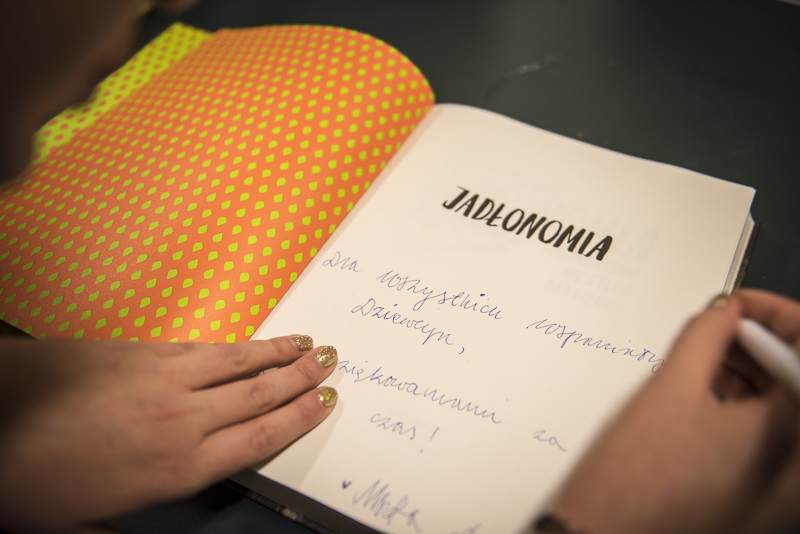 JADŁONOMIA
Dla wszystkich wspaniały
Dziewczyn,
ziękowaniami za
czas!